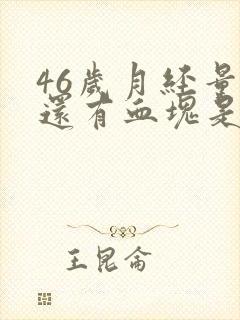 46歲月經量
還有血塊是
王昆侖